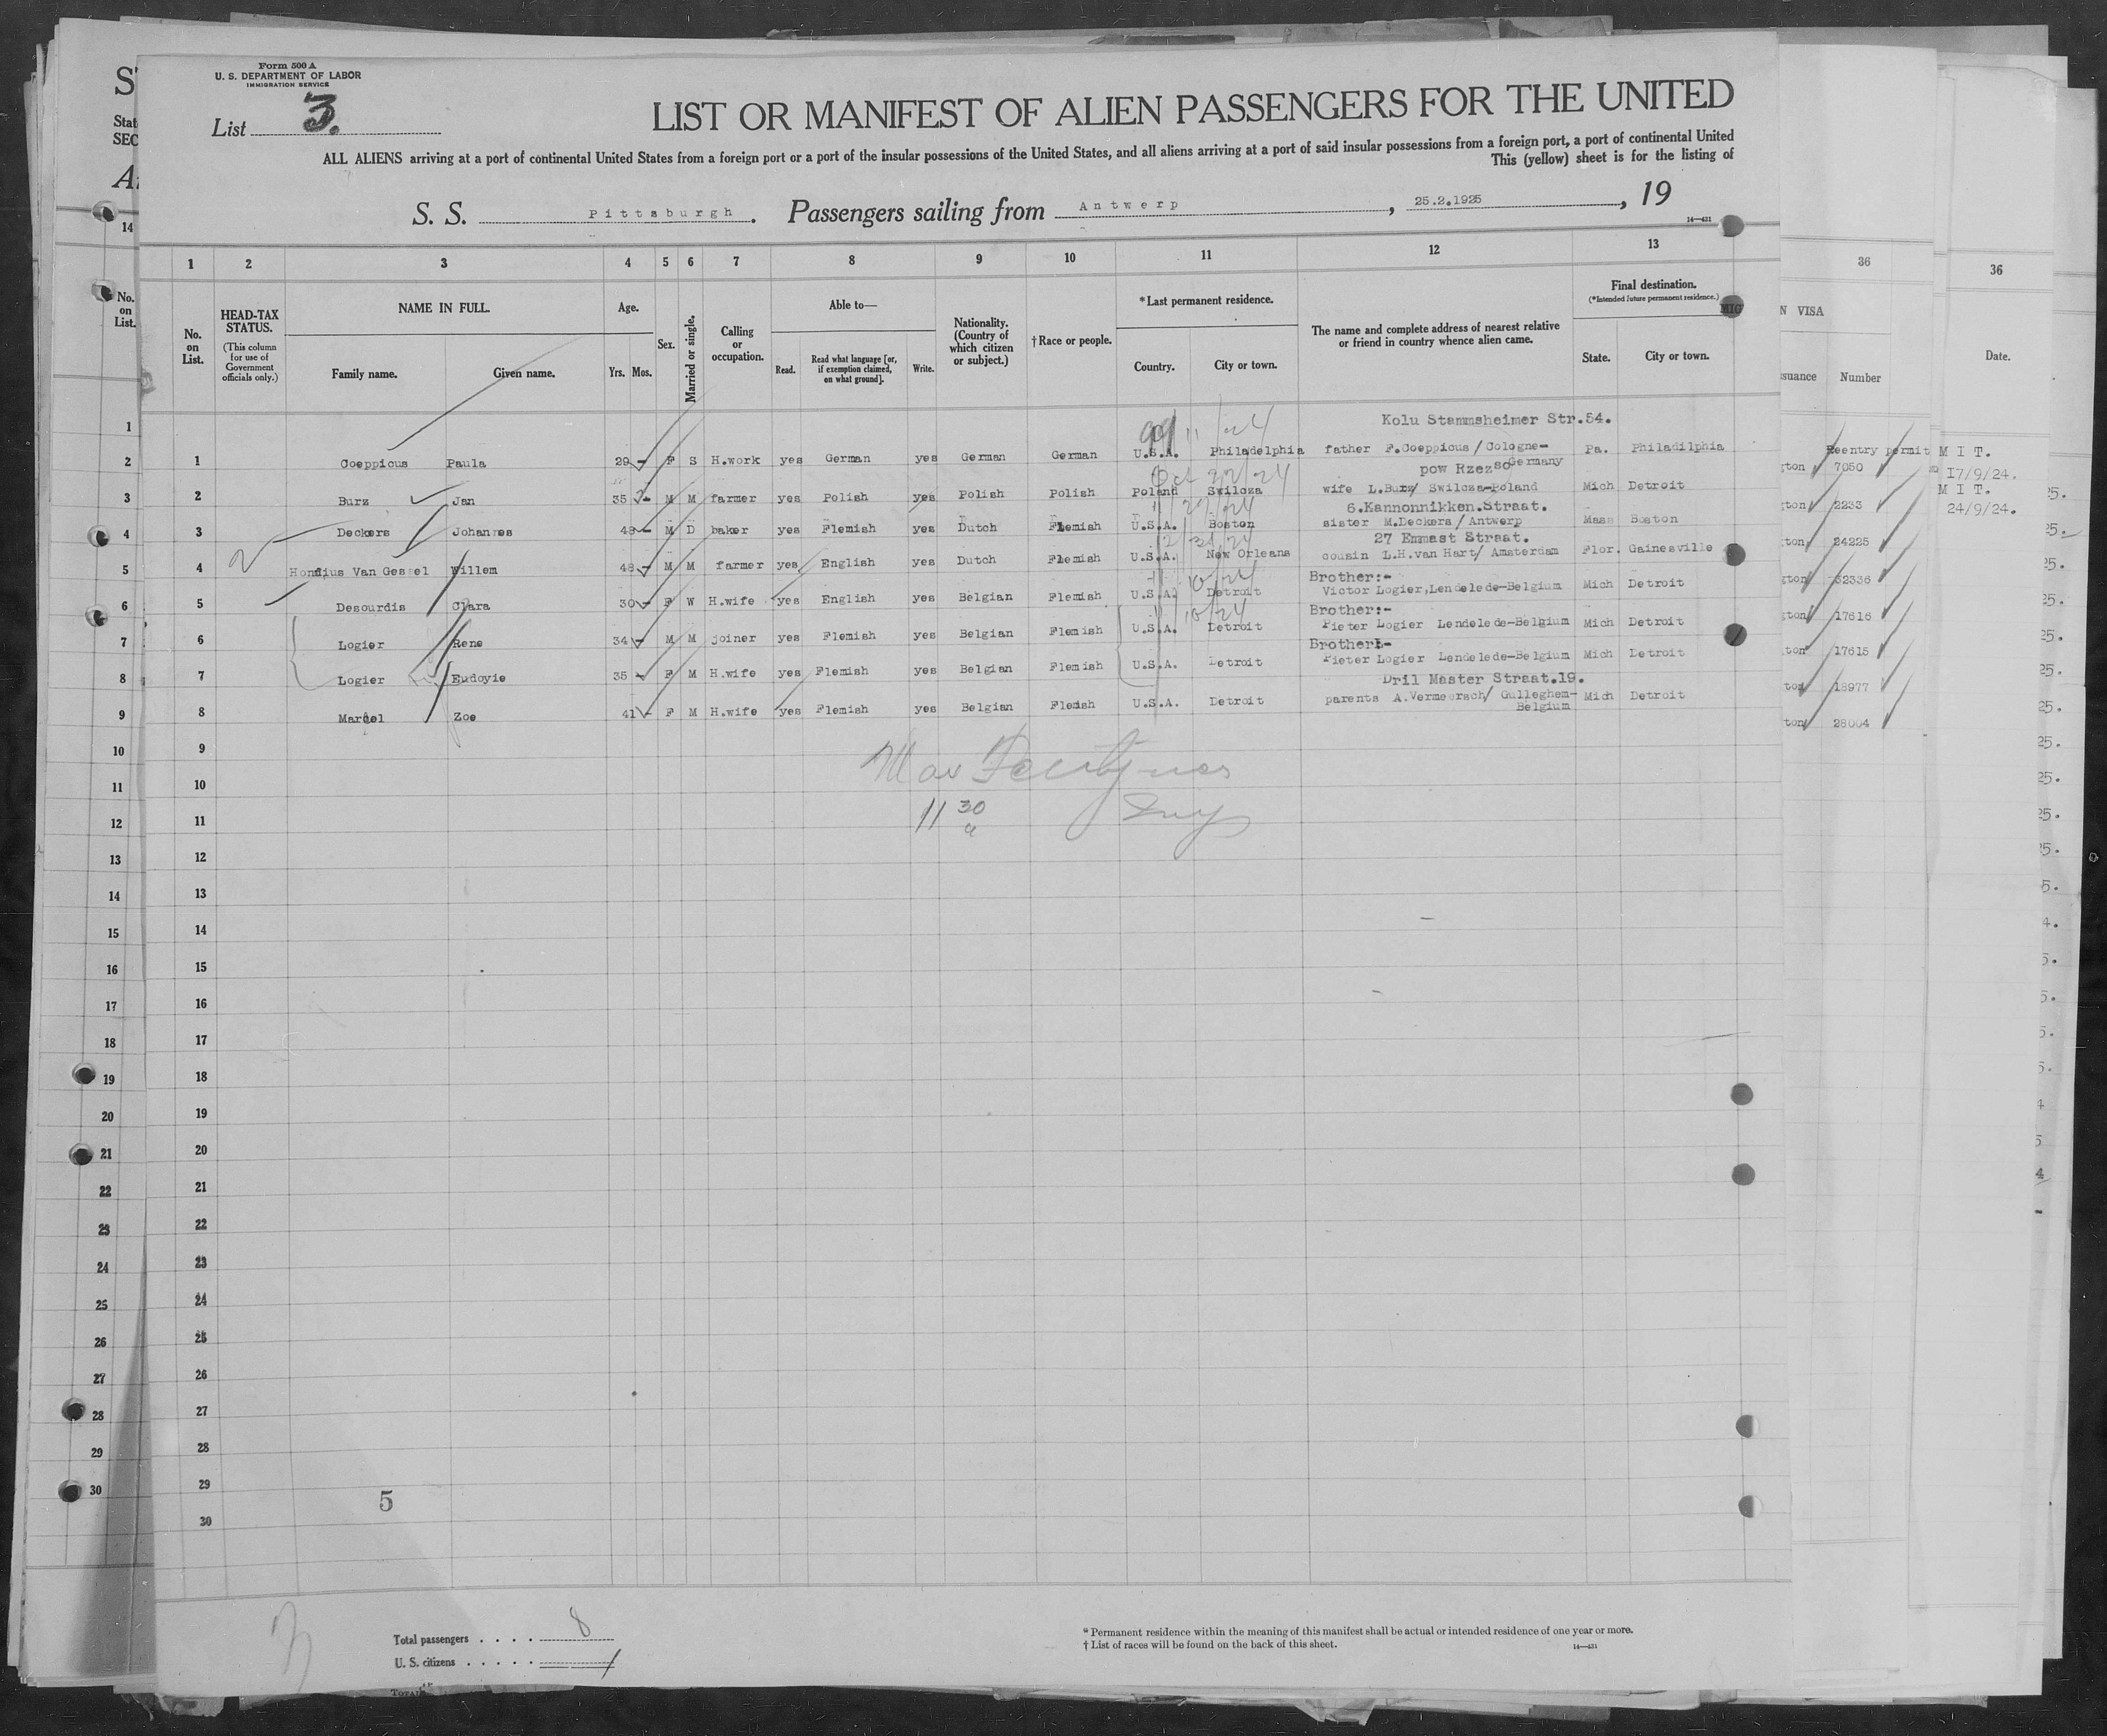 Form 500 A
U. S. DEPARTMENT OF LABOR
IMMIGRATION SERVICE
List 3.
LIST OR MANIFEST OF ALIEN PASSENGERS FOR THE UNITED
ALL ALIENS arriving at a port of continental United States from a foreign port or a port of the insular possessions of the United States, and all aliens arriving at a port of said insular possessions from a foreign port, a port of continental United
This (yellow) sheet is for the listing of
S. S. Pittsburgh. Passengers sailing from Antwerp, 25.2.1925, 19
14—431
1 2 3 4 5 6 7 8 9 10 11 12 13
No. on List.
HEAD-TAX STATUS.
(This column for use of Government officials only.)
NAME IN FULL.
Family name. Given name.
Age.
Yrs. Mos.
Sex.
Married or single.
Calling or occupation.
Able to—
Read. Read what language [or, if exemption claimed, on what ground]. Write.
Nationality. (Country of which citizen or subject.)
†Race or people.
*Last permanent residence.
Country. City or town.
The name and complete address of nearest relative or friend in country whence alien came.
Final destination.
(*Intended future permanent residence.)
State. City or town.
Kolu Stammsheimer Str.54.
1 Coeppicus Paula 29 F S H.work yes German yes German German U.S.A. Philadelphia father F.Coeppicus/Cologne- Pa. Philadilphia
Germany
pow Rzezso
Oct 22/24
2 Burz Jan 35 M M farmer yes Polish yes Polish Polish Poland Swilcza wife L.Burz/ Swilcza-Poland Mich Detroit
6.Kannonnikken.Straat.
3 Deckers Johannes 48 M D baker yes Flemish yes Dutch Flemish U.S.A. Boston sister M.Deckers/Antwerp Mass Boston
27 Emmast Straat.
4 Hondius Van Gessel Willem 48 M M farmer yes English yes Dutch Flemish U.S.A. New Orleans cousin L.H.van Hart/ Amsterdam Flor. Gainesville
Brother:-
5 Desourdis Clara 30 F W H.wife yes English yes Belgian Flemish U.S.A. Detroit Victor Logier,Lendelede-Belgium Mich Detroit
Brother:-
6 Logier Rene 34 M M joiner yes Flemish yes Belgian Flemish U.S.A. Detroit Pieter Logier Lendelede-Belgium Mich Detroit
Brother:-
7 Logier Eudoyie 35 F M H.wife yes Flemish yes Belgian Flemish U.S.A. Detroit Pieter Logier Lendelede-Belgium Mich Detroit
Dril Master Straat.19.
8 Marcel Zoe 41 F M H.wife yes Flemish yes Belgian Flemish U.S.A. Detroit parents A.Vermeersch/ Gulleghem- Mich Detroit
Belgium
9
10
11 11 30
12
13
14
15
16
17
18
19
20
21
22
23
24
25
26
27
28
29
30
5
Total passengers . . . . 8
U. S. citizens . . . . .
* Permanent residence within the meaning of this manifest shall be actual or intended residence of one year or more.
† List of races will be found on the back of this sheet.
14—431
14
No. on List.
1
2
3
4
5
6
7
8
9
10
11
12
13
14
15
16
17
18
19
20
21
22
23
24
25
26
27
28
29
30
36
VISA
Number
Reentry permit
gton 7050
gton 2233
gton 24225
gton 32336
gton 17616
ton 17615
ton 18977
ton 28004
36
Date.
M I T.
17/9/24.
M I T.
24/9/24.